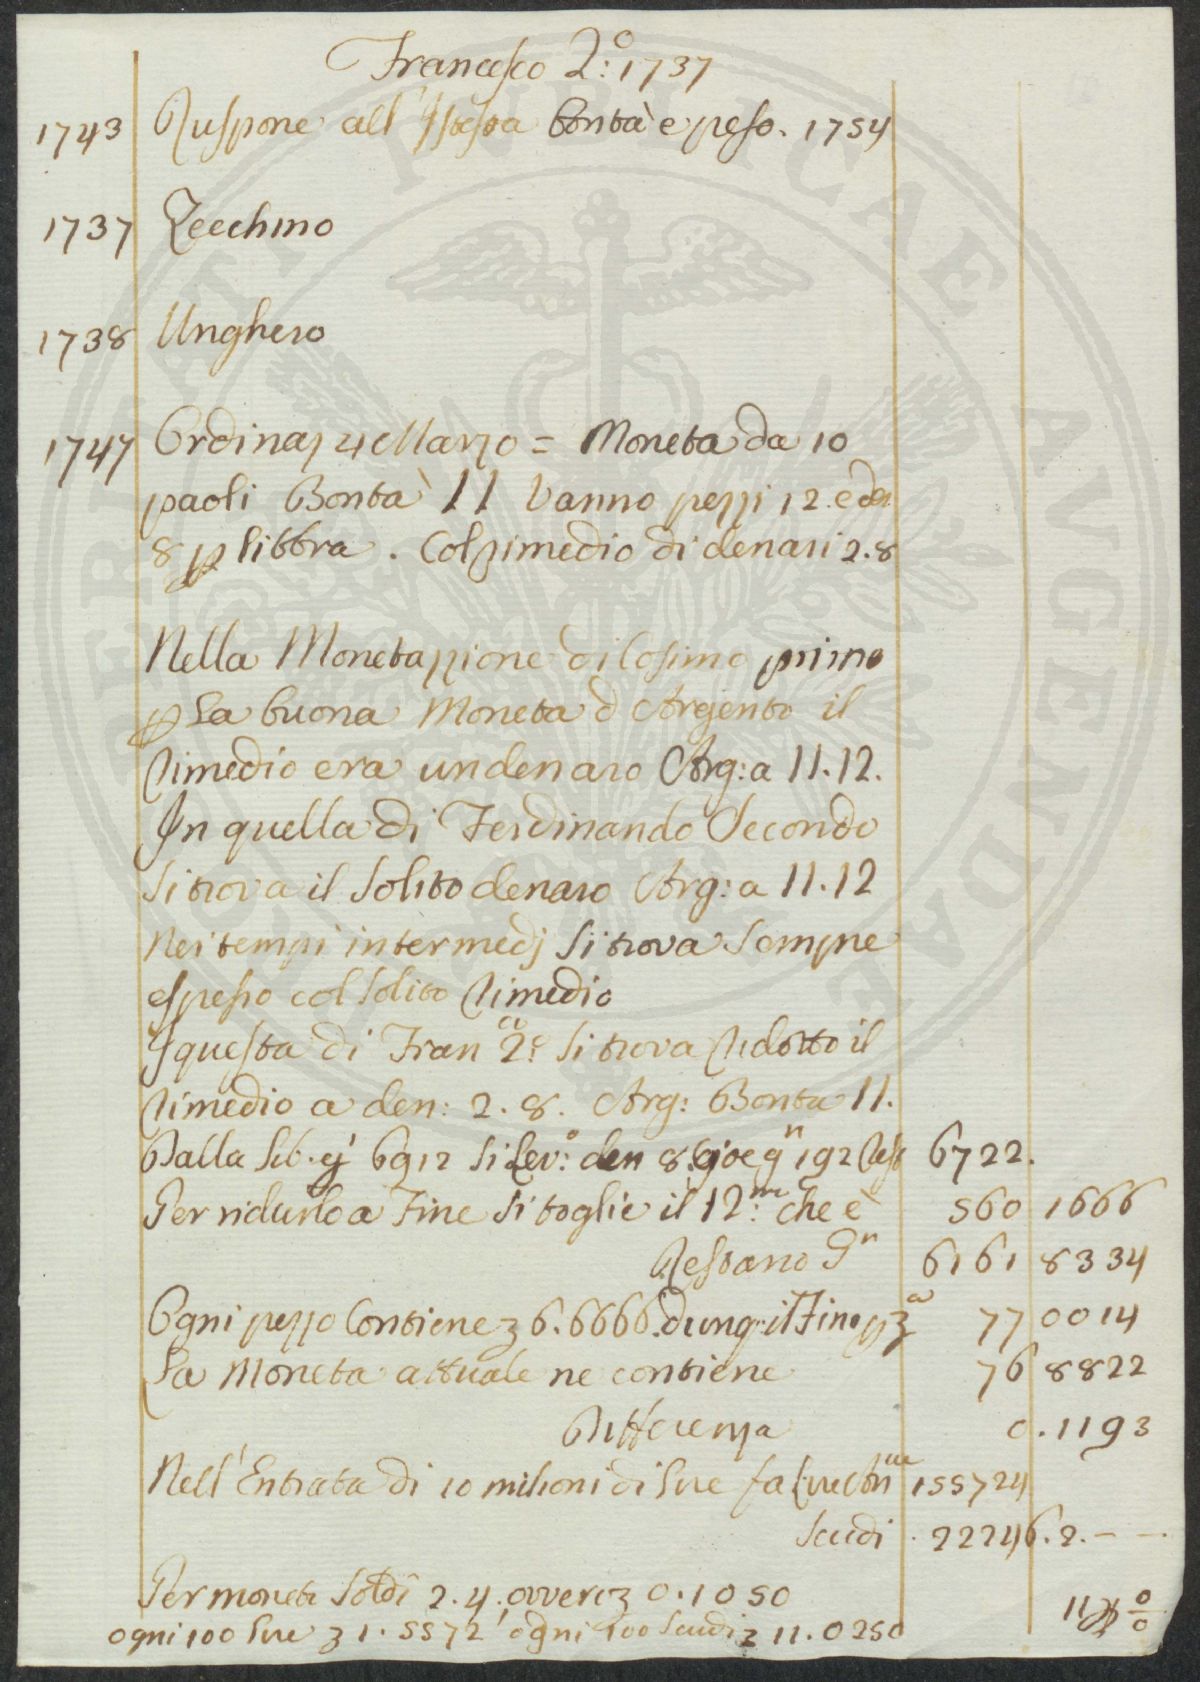 Francesco 2:o 1737
1743 Ruspone all' Istessa Bontà e peso. 1754
1737 Zecchino
1738 Unghero
1747 Ordinaz 4 Marzo = Moneta da 10
paoli Bontà 11 Vanno pezzi 12. e den
8 p libbra. Col rimedio di denari 2.8
Nella Monetazzione di Cosimo primo
p La buona Moneta d Argento il
rimedio era un denaro Arg: a 11.12.
In quella di Ferdinando Secondo
Si trova il Solito denaro Arg: a 11.12
Nei tempi intermedj Si trova Sempre
espesso col Solito rimedio
In questa di Fran co 2:o Si trova ridotto il
rimedio a den: 2.8. Arg: Bontà 11.
Dalla Lib. 6912 Si Lev:o den 8. cioe g n 192 6722.
Per ridurlo a Fine Si toglie il 12:mo che è 560 1666
Restano G n 6161 8334
Ogni pezzo Contiene 6.6666. dunq: il Fine p 77 0014
La Moneta attuale ne contiene 76 8822
Differenza 0.1193
Nell' Entrata di 10 milioni di Lire fa Lire 155724
Scudi 22246.2.--
Per moneta Soldi 2.4. ovvero 0.1050
ogni 100 Lire 1.5572 ogni 100 Scudi 11.0250
11 p 0/0
PUBLICAE AVGENDAE